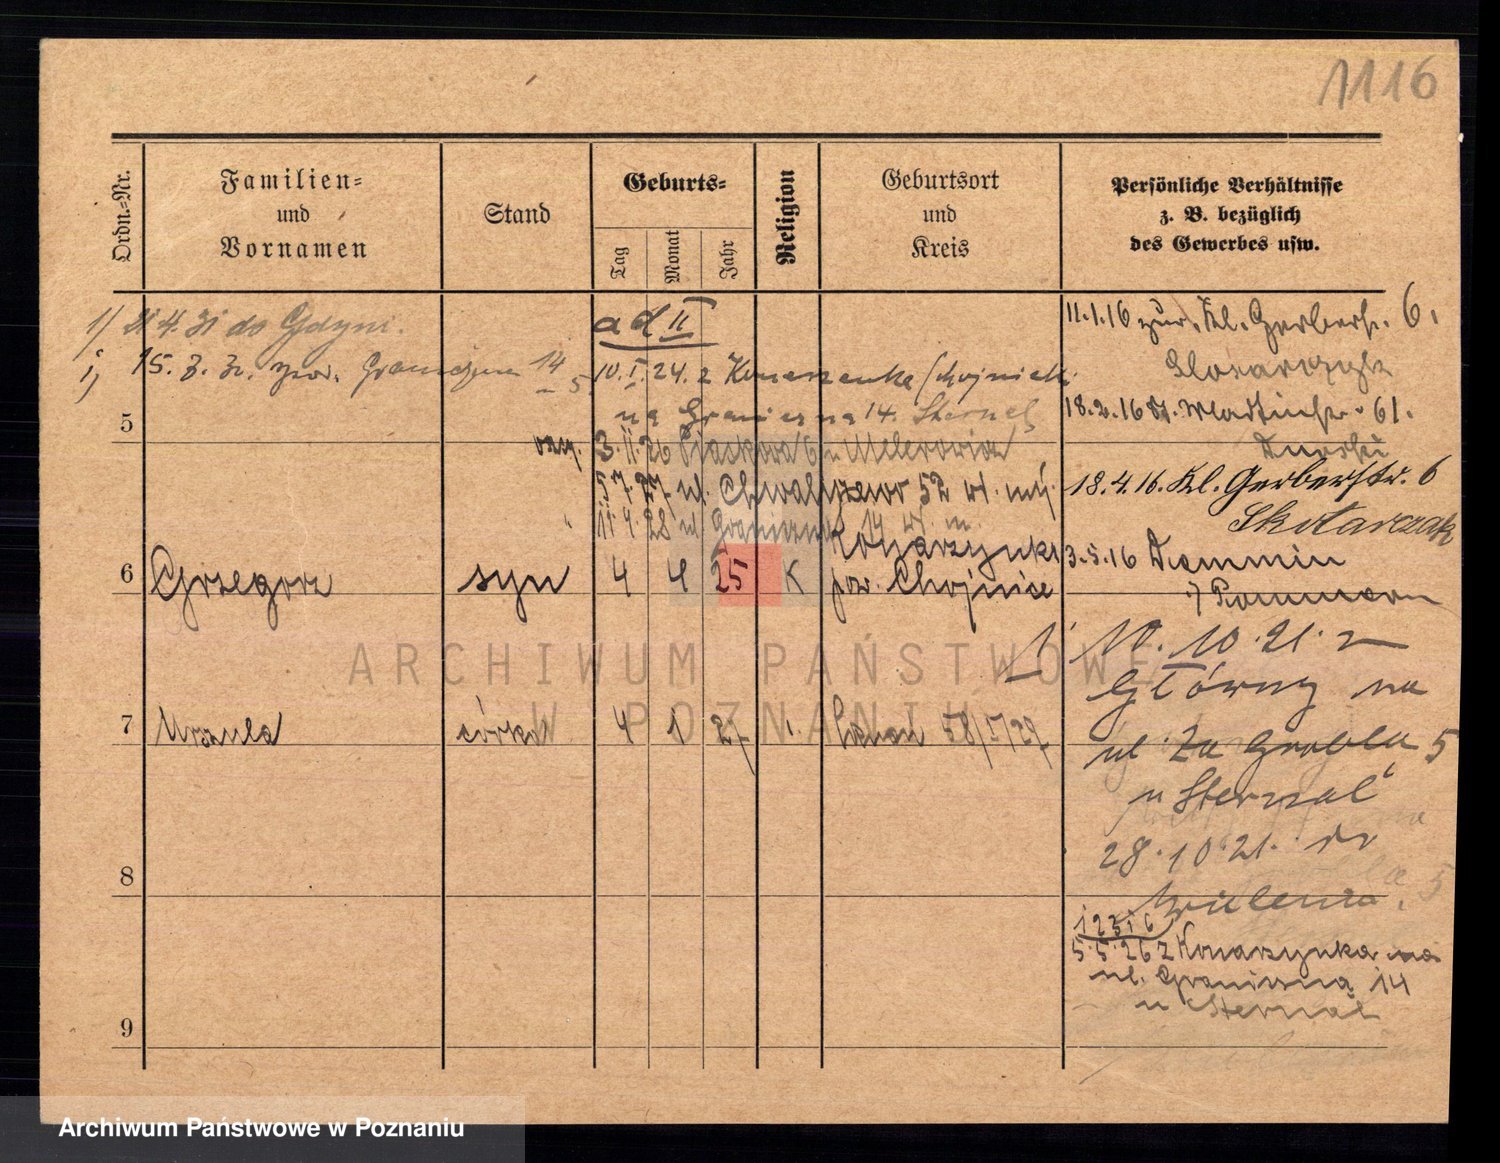 1116
Ordn.=Nr.
Familien=
und
Vornamen
Stand
Geburts=
Tag
Monat
Jahr
Religion
Geburtsort
und
Kreis
Persönliche Verhältnisse
z. B. bezüglich
des Gewerbes usw.
1) 21 4. 31 do Gdyni.
15. 3. 31.
14
5
ad II
10. I. 24. z
na Graniczna 14. Sternal
5
3. 11. 26 Piaskowa 6 u
5 7. 27 ul. Chwaliszewo 52 wł. m.
11. 4. 28 ul Graniczna 14 wł. m.
6 Grzegorz syn 4 4 25 K Konarzynki
pow. Chojnice
7 Urszula córka 4 1 27
8
9
11.1.16 zur. Kl. Gerberstr. 6.
18.2.16 61.
18.4.16. Kl. Gerberstr. 6
Skotarczak
3.5.16 Demmin
Pommern
1) 10. 10. 21. z
Główny na
ul. Za Groblą 5
u Sternal
28. 10. 21. do
5.5.26 z Konarzynka na
ul. Graniczną 14
u Sternal
ARCHIWUM PAŃSTWOWE
W POZNANIU
Archiwum Państwowe w Poznaniu